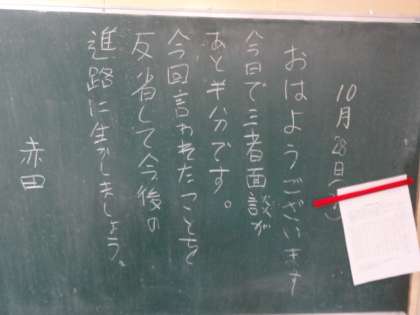 10月28日(
おはようございます
今日で三者面談が
あと半分です。
今回言われたことを
反省して今後の
進路に生かしましょう。
赤田